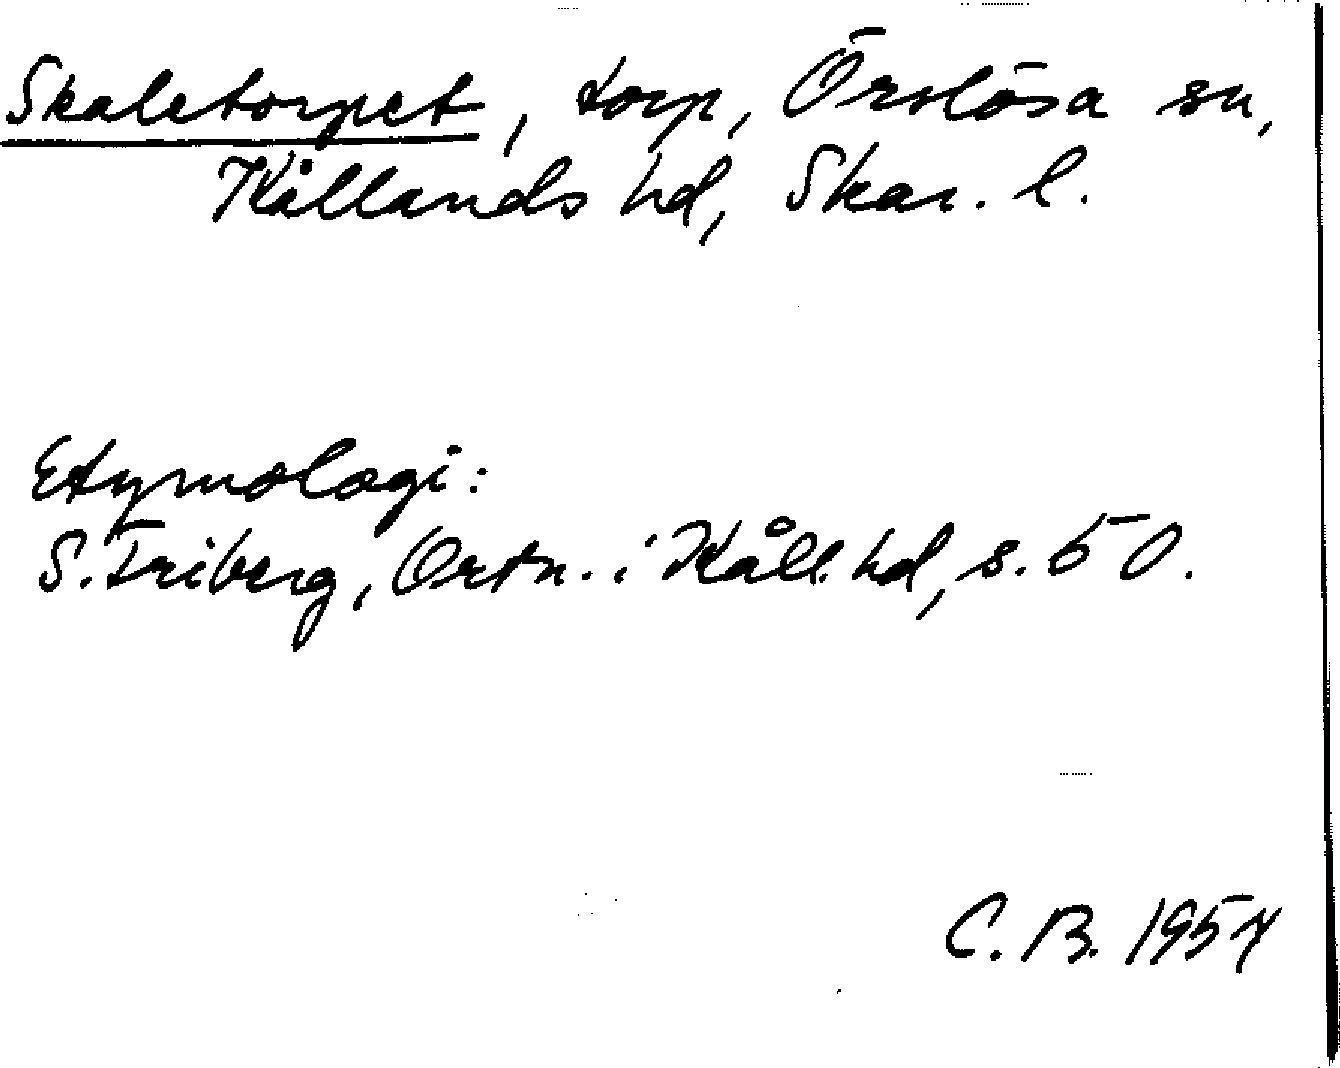 Skaletorpet, torp, Örslösa sn,
Kållands hd, Skar. l.
Etymologi:
S. Friberg, Ortn. i Kåll. hd, s. 50.
C. B. 1957